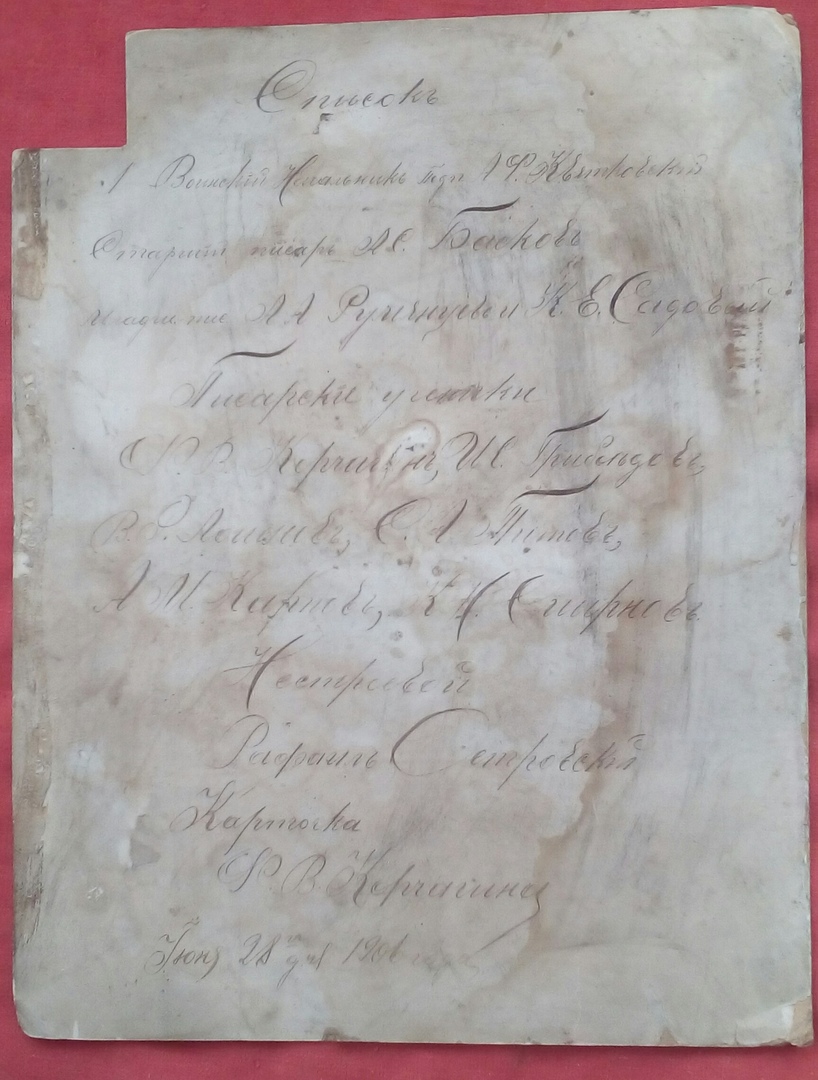 Списокъ
1 Воинскій Начальникъ подп А Ф. Кѣтровскій
Старшій писарь А С. Басковъ
Младш. пис А А Ручичнуцъ и К. Е. Садовый
Писарски ученики
Ф. В. Корчагинъ, И С. Грибоѣдовъ,
В. С. С. А Титовъ,
А И. Карповъ, К И. Смирновъ
Нестроевой
Рафаилъ Островскій
Карточка
Ф. В. Корчагина
Іюня 28 дня 1906 года